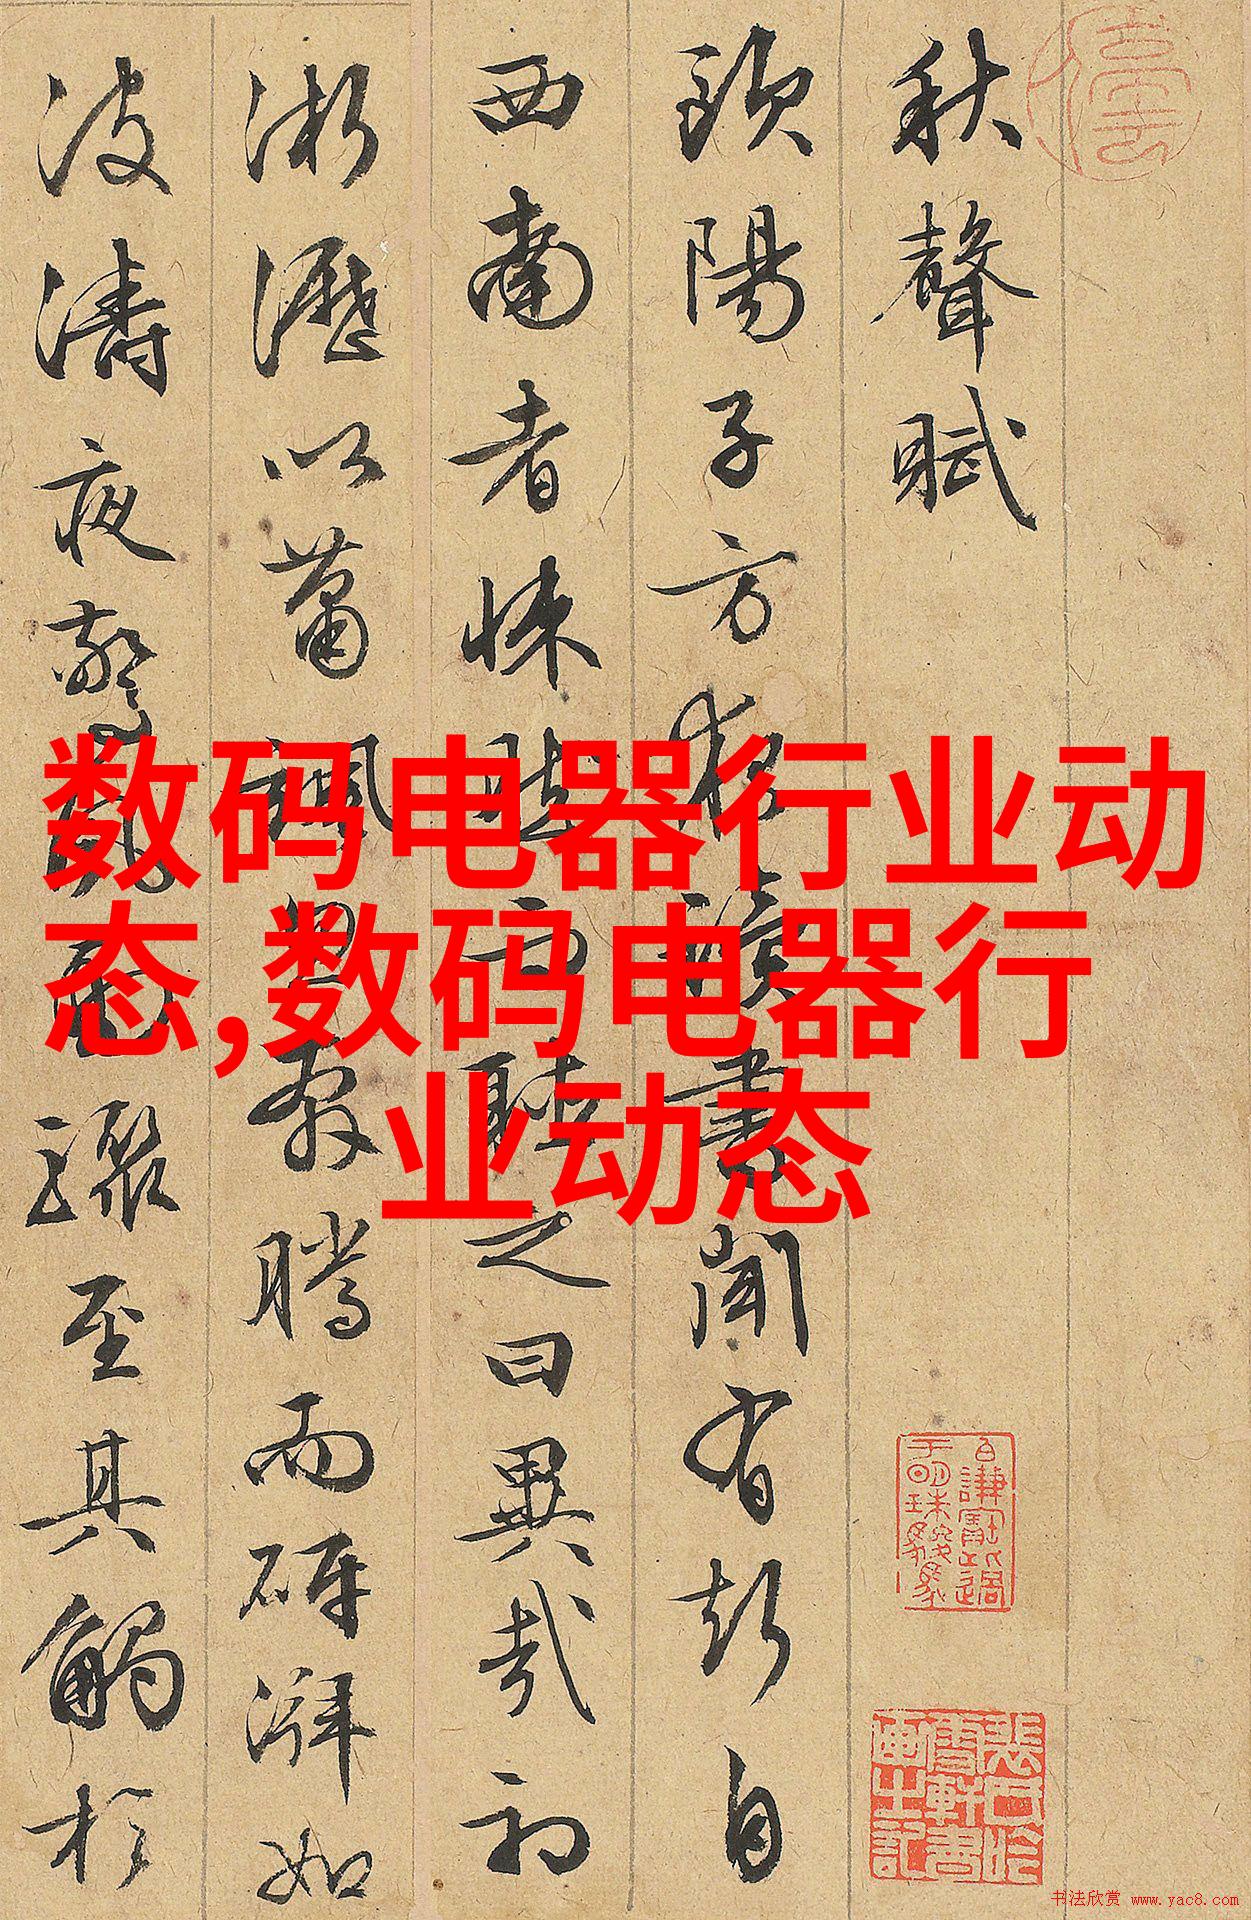 秋聲賦
歐陽子方夜讀書聞有聲自
西南者悚然而聽之曰異哉初
淅瀝以蕭颯忽奔騰而砰湃如
波濤夜驚風雨驟至其觸於
数码电器行业动
态,数码电器行
业动态
书法欣赏 www.yac8.com